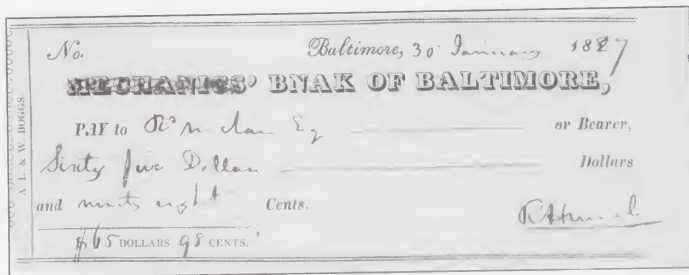 No. Baltimore, 30 January 1827
MECHANICS' BNAK OF BALTIMORE,
PAY to Esq or Bearer,
Sixty five Dollars Dollars
and ninety eight Cents.
$65 DOLLARS 98 CENTS.
A L & W. BOGGS.